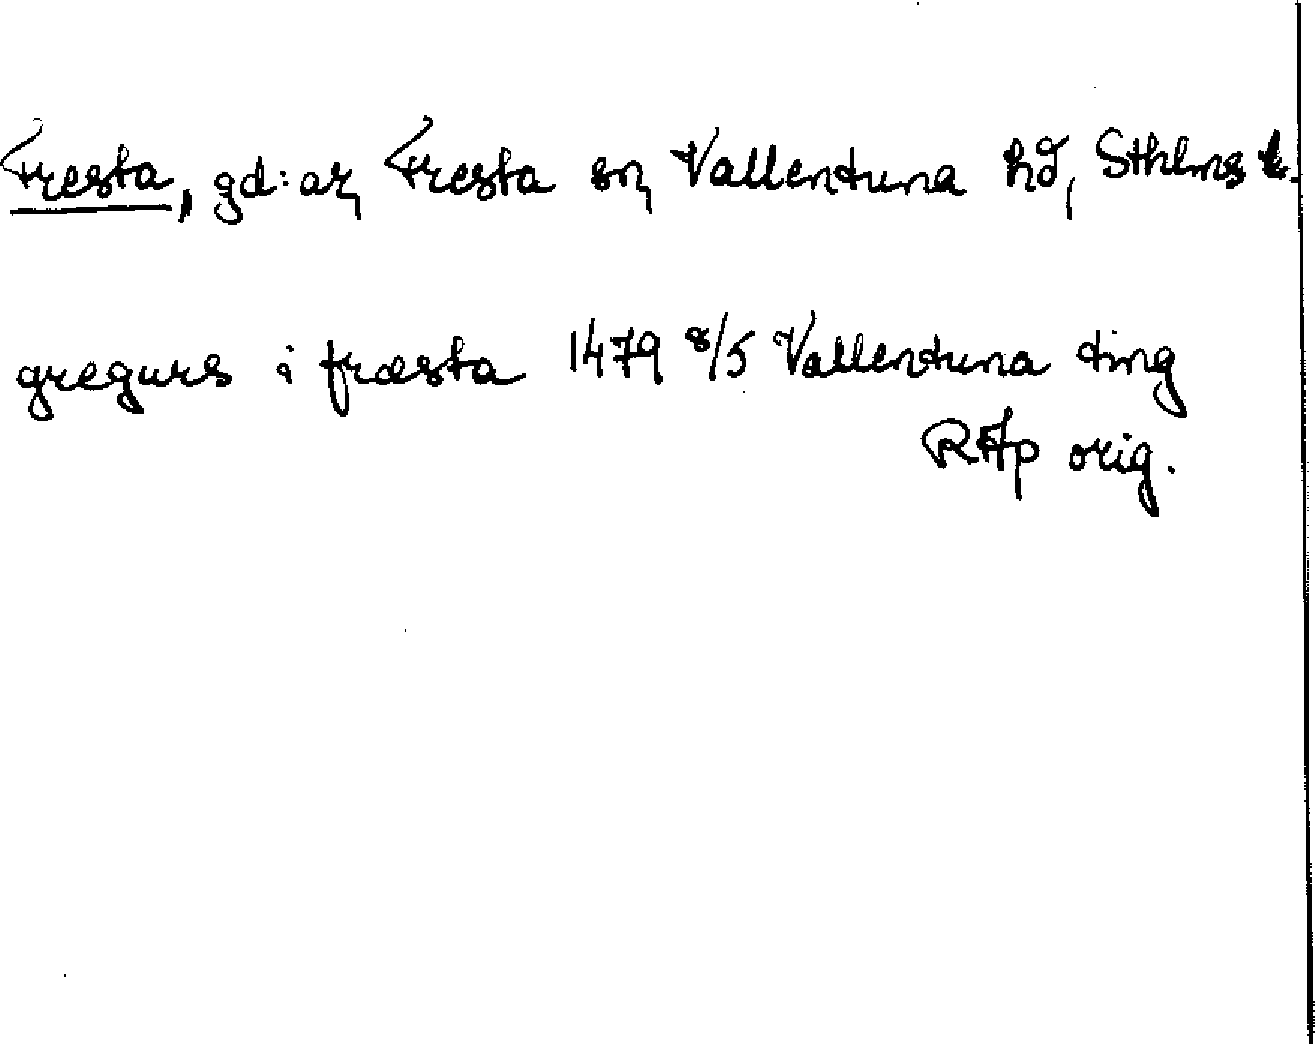 Fresta, gd:ar, Fresta sn, Vallentuna hd, Sthlms l.
gregurs i fræsta 1479 8/5 Vallentuna ting
RAp orig.